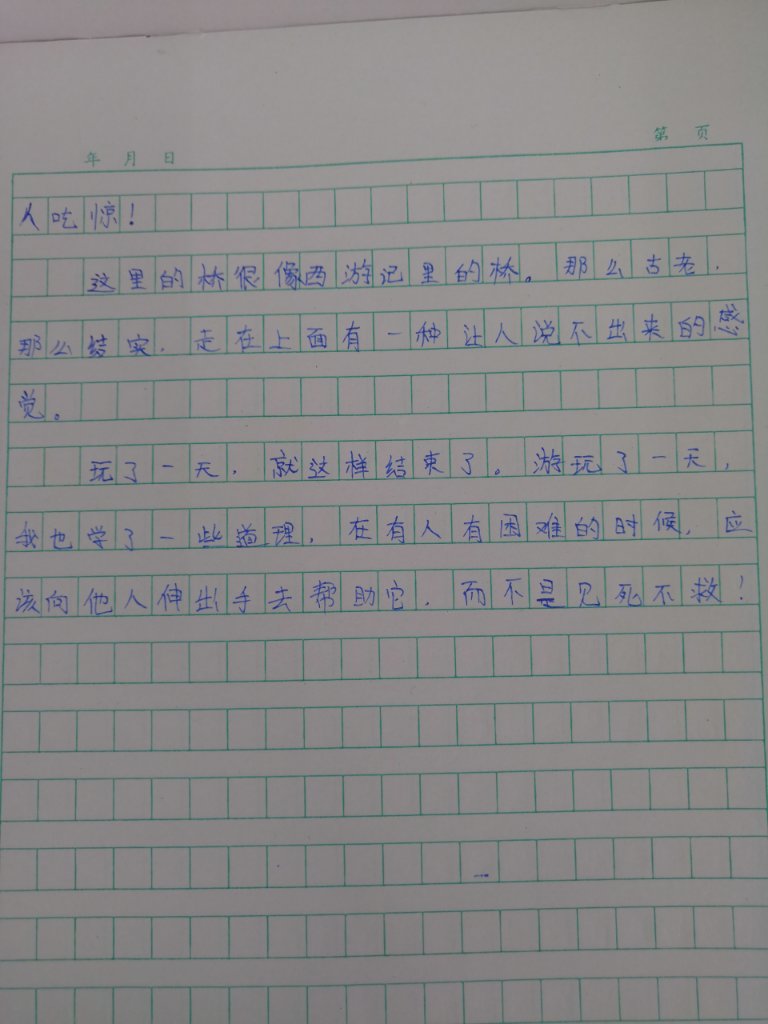 年 月 日
第 页
人吃惊！
这里的桥很像西游记里的桥。那么古老，
那么结实，走在上面有一种让人说不出来的感
觉。
玩了一天，就这样结束了。游玩了一天，
我也学了一些道理，在有人有困难的时候，应
该向他人伸出手去帮助它，而不是见死不救！